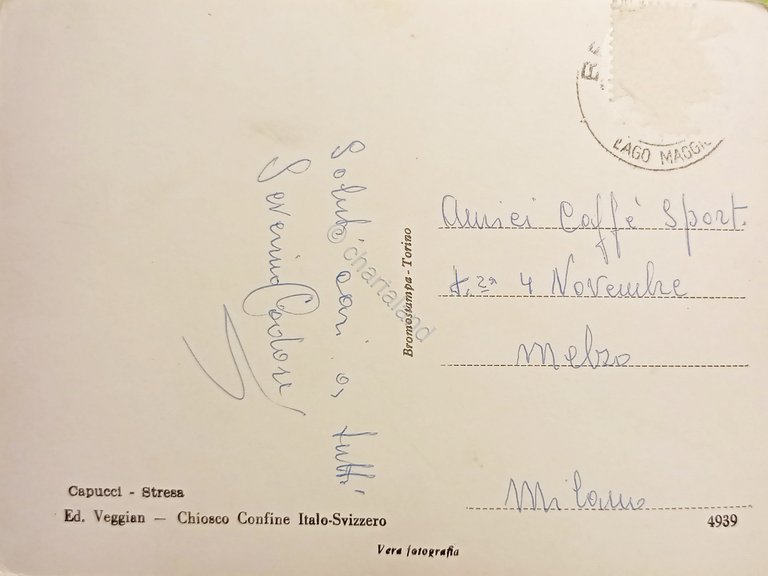 LAGO MAGGI
Amici Caffè Sport.
4 Novembre
Melzo
Milano
Saluti cari a, tutti
Severino
Bromostampa - Torino
© chartaland
Capucci - Stresa
Ed. Veggian — Chiosco Confine Italo-Svizzero
4939
Vera fotografia